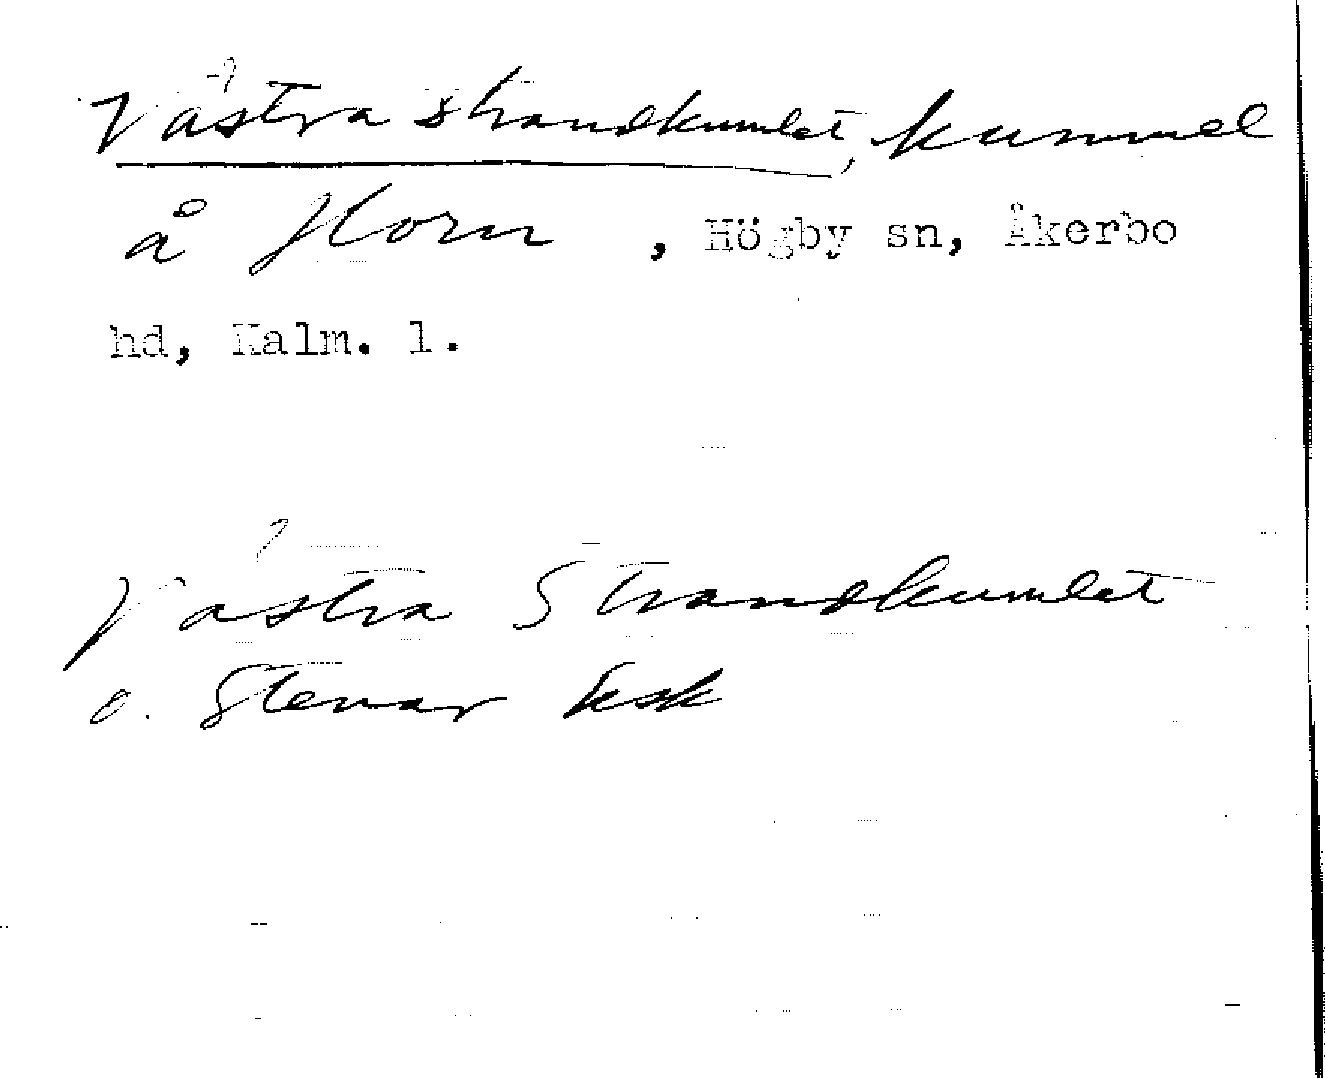 Västra strandkumlet, kummel
å Horn, Högby sn, Åkerbo
hd, Kalm. l.
Västra Strandkumlet
o. Stenar Ksk